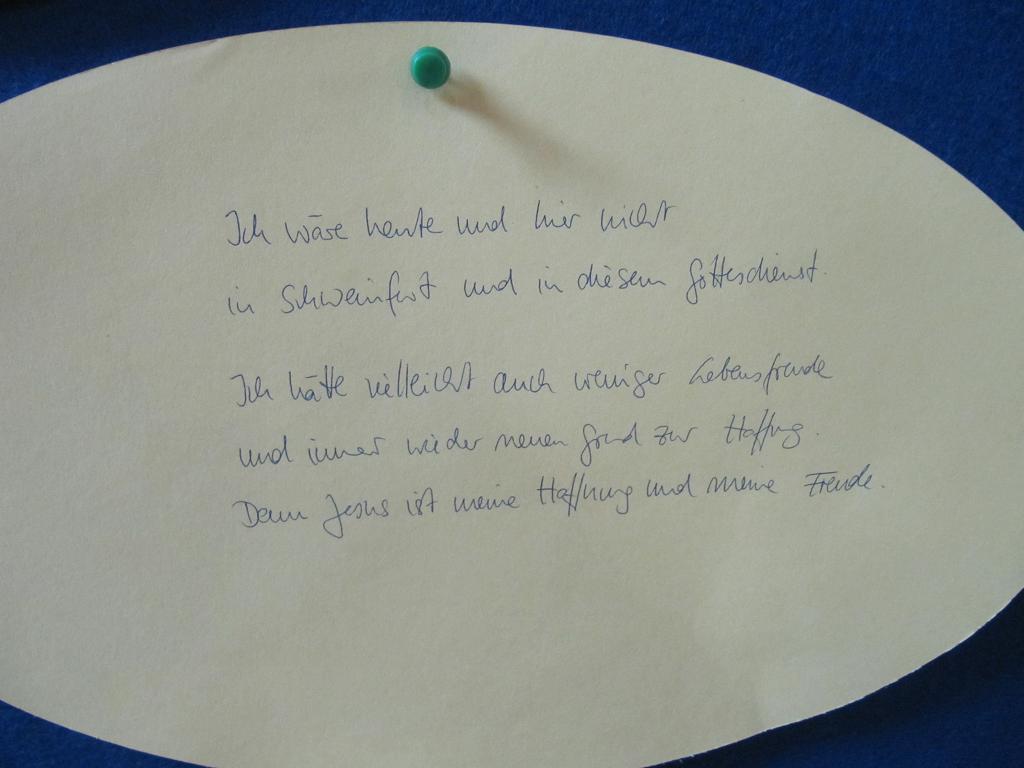 Ich wäre heute und hier nicht
in Schweinfurt und in diesem Gottesdienst.
Ich hätte vielleicht auch weniger Lebensfreude
und immer wieder neuen Grund zur Hoffng.
Denn Jesus ist meine Hoffnung und meine Freude.